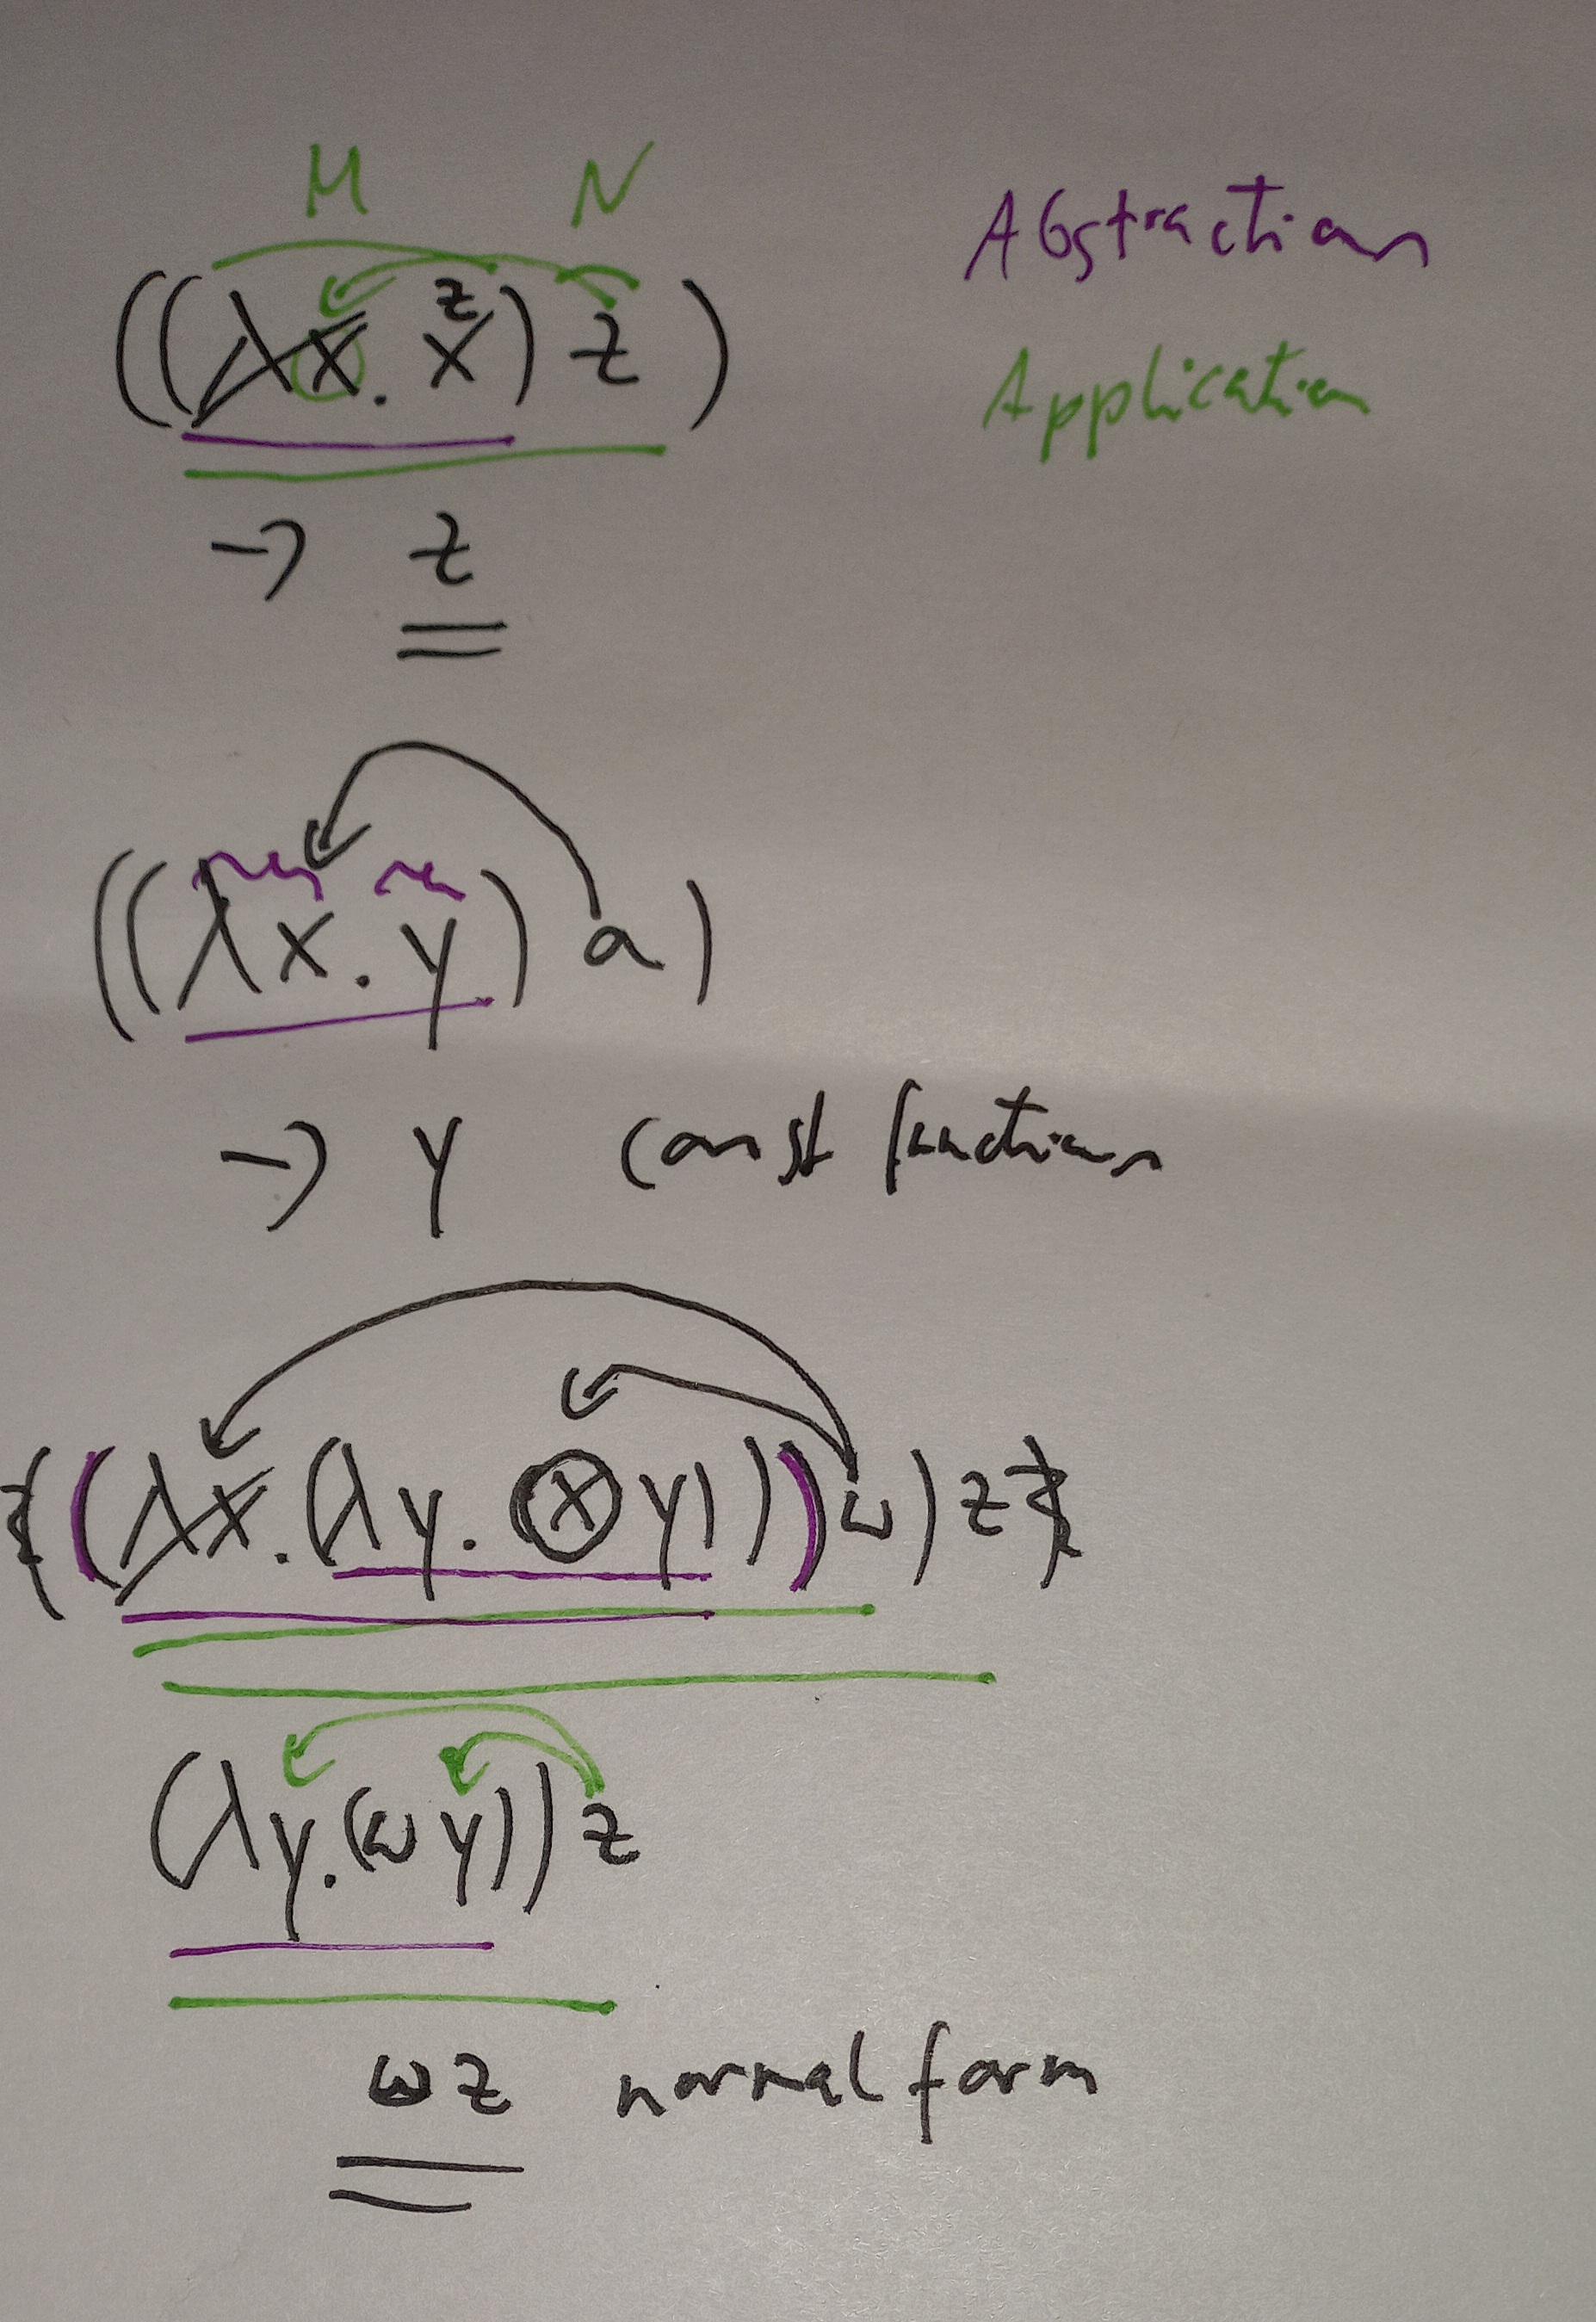 M N
Abstraction
((λx. x) z)
z
Application
-> z
((λx. y) a)
-> y const function
(((λx.(λy. (x y))) w) z)
(λy.(w y)) z
w z normal form